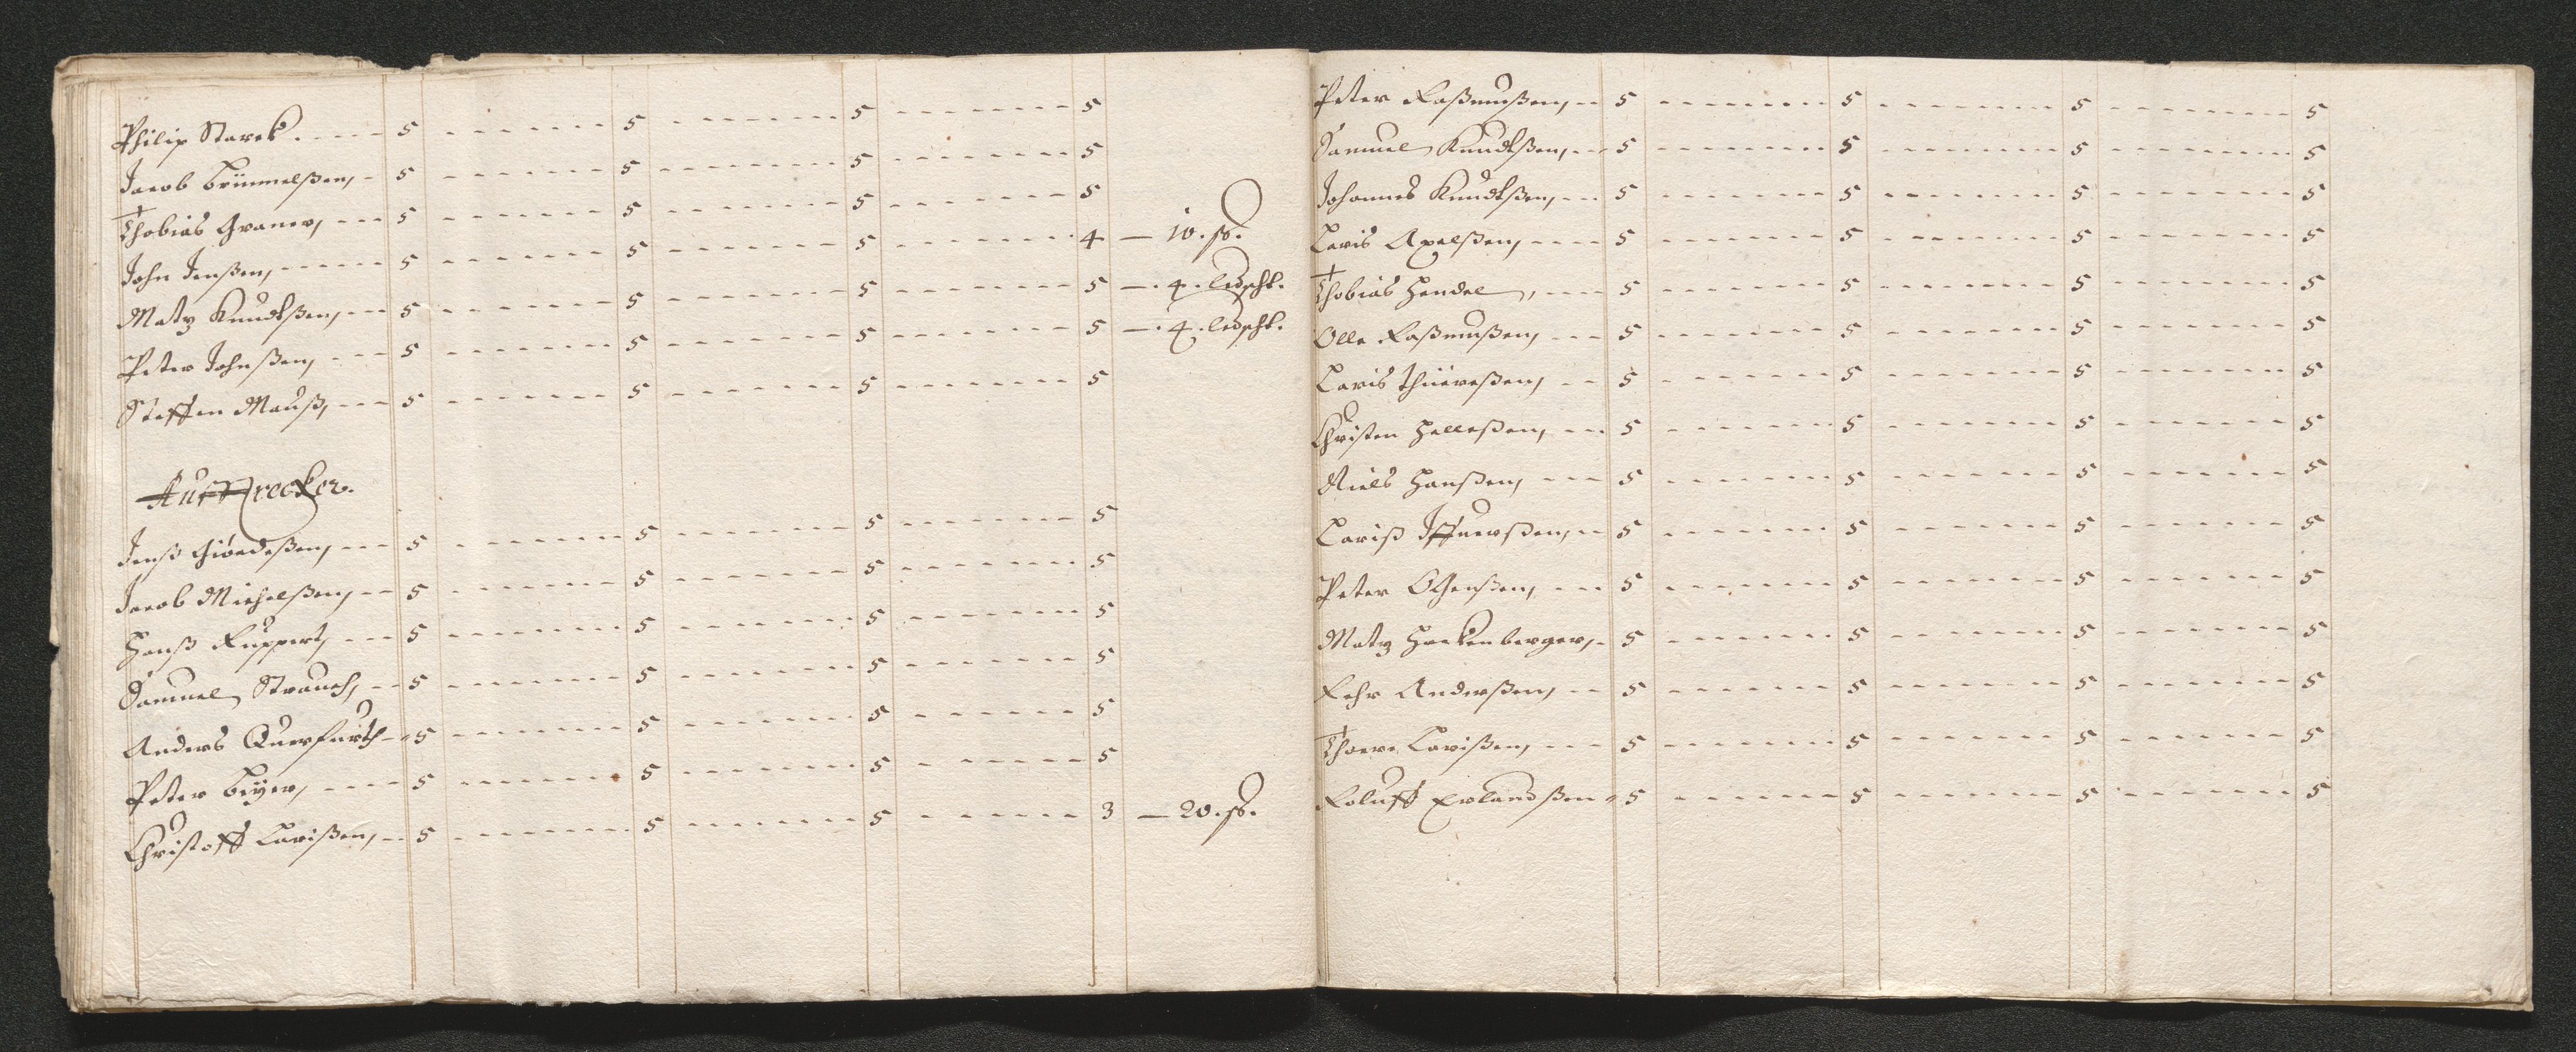 Philip Starck. - - - 5 - - - - - - - 5 - - - - - - - 5 - - - - - - - 5
Jacob Brümmelßen, - 5 - - - - - - - 5 - - - - - - - 5 - - - - - - - 5
Thobias Graner, - - - 5 - - - - - - - 5 - - - - - - - 5 - - - - - - - 5
John Jenßen, - - - - - 5 - - - - - - - 5 - - - - - - - 5 - - - - - - - 4 — 10. ß.
Matz Knudtßen, - - - 5 - - - - - - - 5 - - - - - - - 5 - - - - - - - 5 —. 4. ledschl.
Peter Johnßen, - - - 5 - - - - - - - 5 - - - - - - - 5 - - - - - - - 5 —. 4. ledschl.
Steffen Mauß, - - - 5 - - - - - - - 5 - - - - - - - 5 - - - - - - - 5
Aufftrecker.
Jenß Giöedeßen, - - - 5 - - - - - - - 5 - - - - - - - 5 - - - - - - - 5
Jacob Michelßen, - - 5 - - - - - - - 5 - - - - - - - 5 - - - - - - - 5
Hanß Ruppert, - - - 5 - - - - - - - 5 - - - - - - - 5 - - - - - - - 5
Samuel Strauch, - - 5 - - - - - - - 5 - - - - - - - 5 - - - - - - - 5
Anders Querfurth - - 5 - - - - - - - 5 - - - - - - - 5 - - - - - - 5
Peter Beyer, - - - - 5 - - - - - - - 5 - - - - - - - 5 - - - - - - 5
Christoff Larißen, - - 5 - - - - - - - 5 - - - - - - - 5 - - - - - - 3 — 20. ß.
Peter Raßmußen, - - 5 - - - - - - - 5 - - - - - - - 5 - - - - - - - 5
Samuel Knudtßen, - - 5 - - - - - - - 5 - - - - - - - 5 - - - - - - - 5
Johannes Knudtßen, - - 5 - - - - - - - 5 - - - - - - - 5 - - - - - - - 5
Laris Axelßen, - - - - 5 - - - - - - - 5 - - - - - - - 5 - - - - - - - 5
Thobias Hendel, - - - 5 - - - - - - - 5 - - - - - - - 5 - - - - - - - 5
Olle Raßmußen, - - - 5 - - - - - - - 5 - - - - - - - 5 - - - - - - - 5
Laris Thüereßen, - - 5 - - - - - - - 5 - - - - - - - 5 - - - - - - - 5
Christen Helleßen, - - - 5 - - - - - - 5 - - - - - - - 5 - - - - - - 5
Niels Hanßen, - - - 5 - - - - - - - 5 - - - - - - - 5 - - - - - - 5
Lariß Iffuerßen, - - 5 - - - - - - - 5 - - - - - - - 5 - - - - - - 5
Peter OGenßen, - - - 5 - - - - - - - 5 - - - - - - - 5 - - - - - - 5
Matz Hackenberger, - 5 - - - - - - - 5 - - - - - - - 5 - - - - - - - 5
Rehr Anderßen, - - 5 - - - - - - - 5 - - - - - - - 5 - - - - - - - 5
Thoere Larißen, - - - 5 - - - - - - - 5 - - - - - - - 5 - - - - - - - 5
Roluff Erlandßen - 5 - - - - - - - 5 - - - - - - - 5 - - - - - - - 5